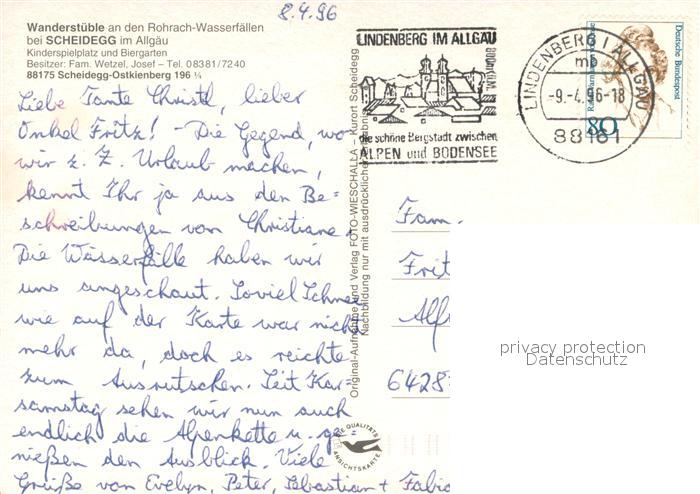 8.4.96
Wanderstüble an den Rohrach-Wasserfällen
bei SCHEIDEGG im Allgäu
Kinderspielplatz und Biergarten
Besitzer: Fam. Wetzel, Josef – Tel. 08381/7240
88175 Scheidegg-Ostkienberg 196 ¼
Liebe Tante Christl, lieber
Onkel Fritz! – Die Gegend, wo
wir z. Z. Urlaub machen,
kennt Ihr ja aus den Be=
schreibungen von Christiane.
Die Wasserfälle haben wir
uns angeschaut. Soviel Schnee
wie auf der Karte war nicht
mehr da, doch es reichte
zum Ausrutschen. Seit Kar=
samstag sehen wir nun auch
endlich die Alpenkette u. ge=
nießen den Ausblick. Viele
Grüße von Evelyn, Peter, Sebastian + Fabio
Original-Aufnahme und Verlag FOTO-WIESCHALLA – Kurort Scheidegg
Nachbildung nur mit ausdrücklicher
LINDENBERG IM ALLGÄU
die schöne Bergstadt zwischen
ALPEN und BODENSEE
LINDENBERG I ALLGÄU
mb
-9.-4.96-18
88161
Deutsche Bundespost
80
Fam.
Frit
Alf
6428
DIE QUALITÄTS
ANSICHTSKARTE
privacy protection
Datenschutz